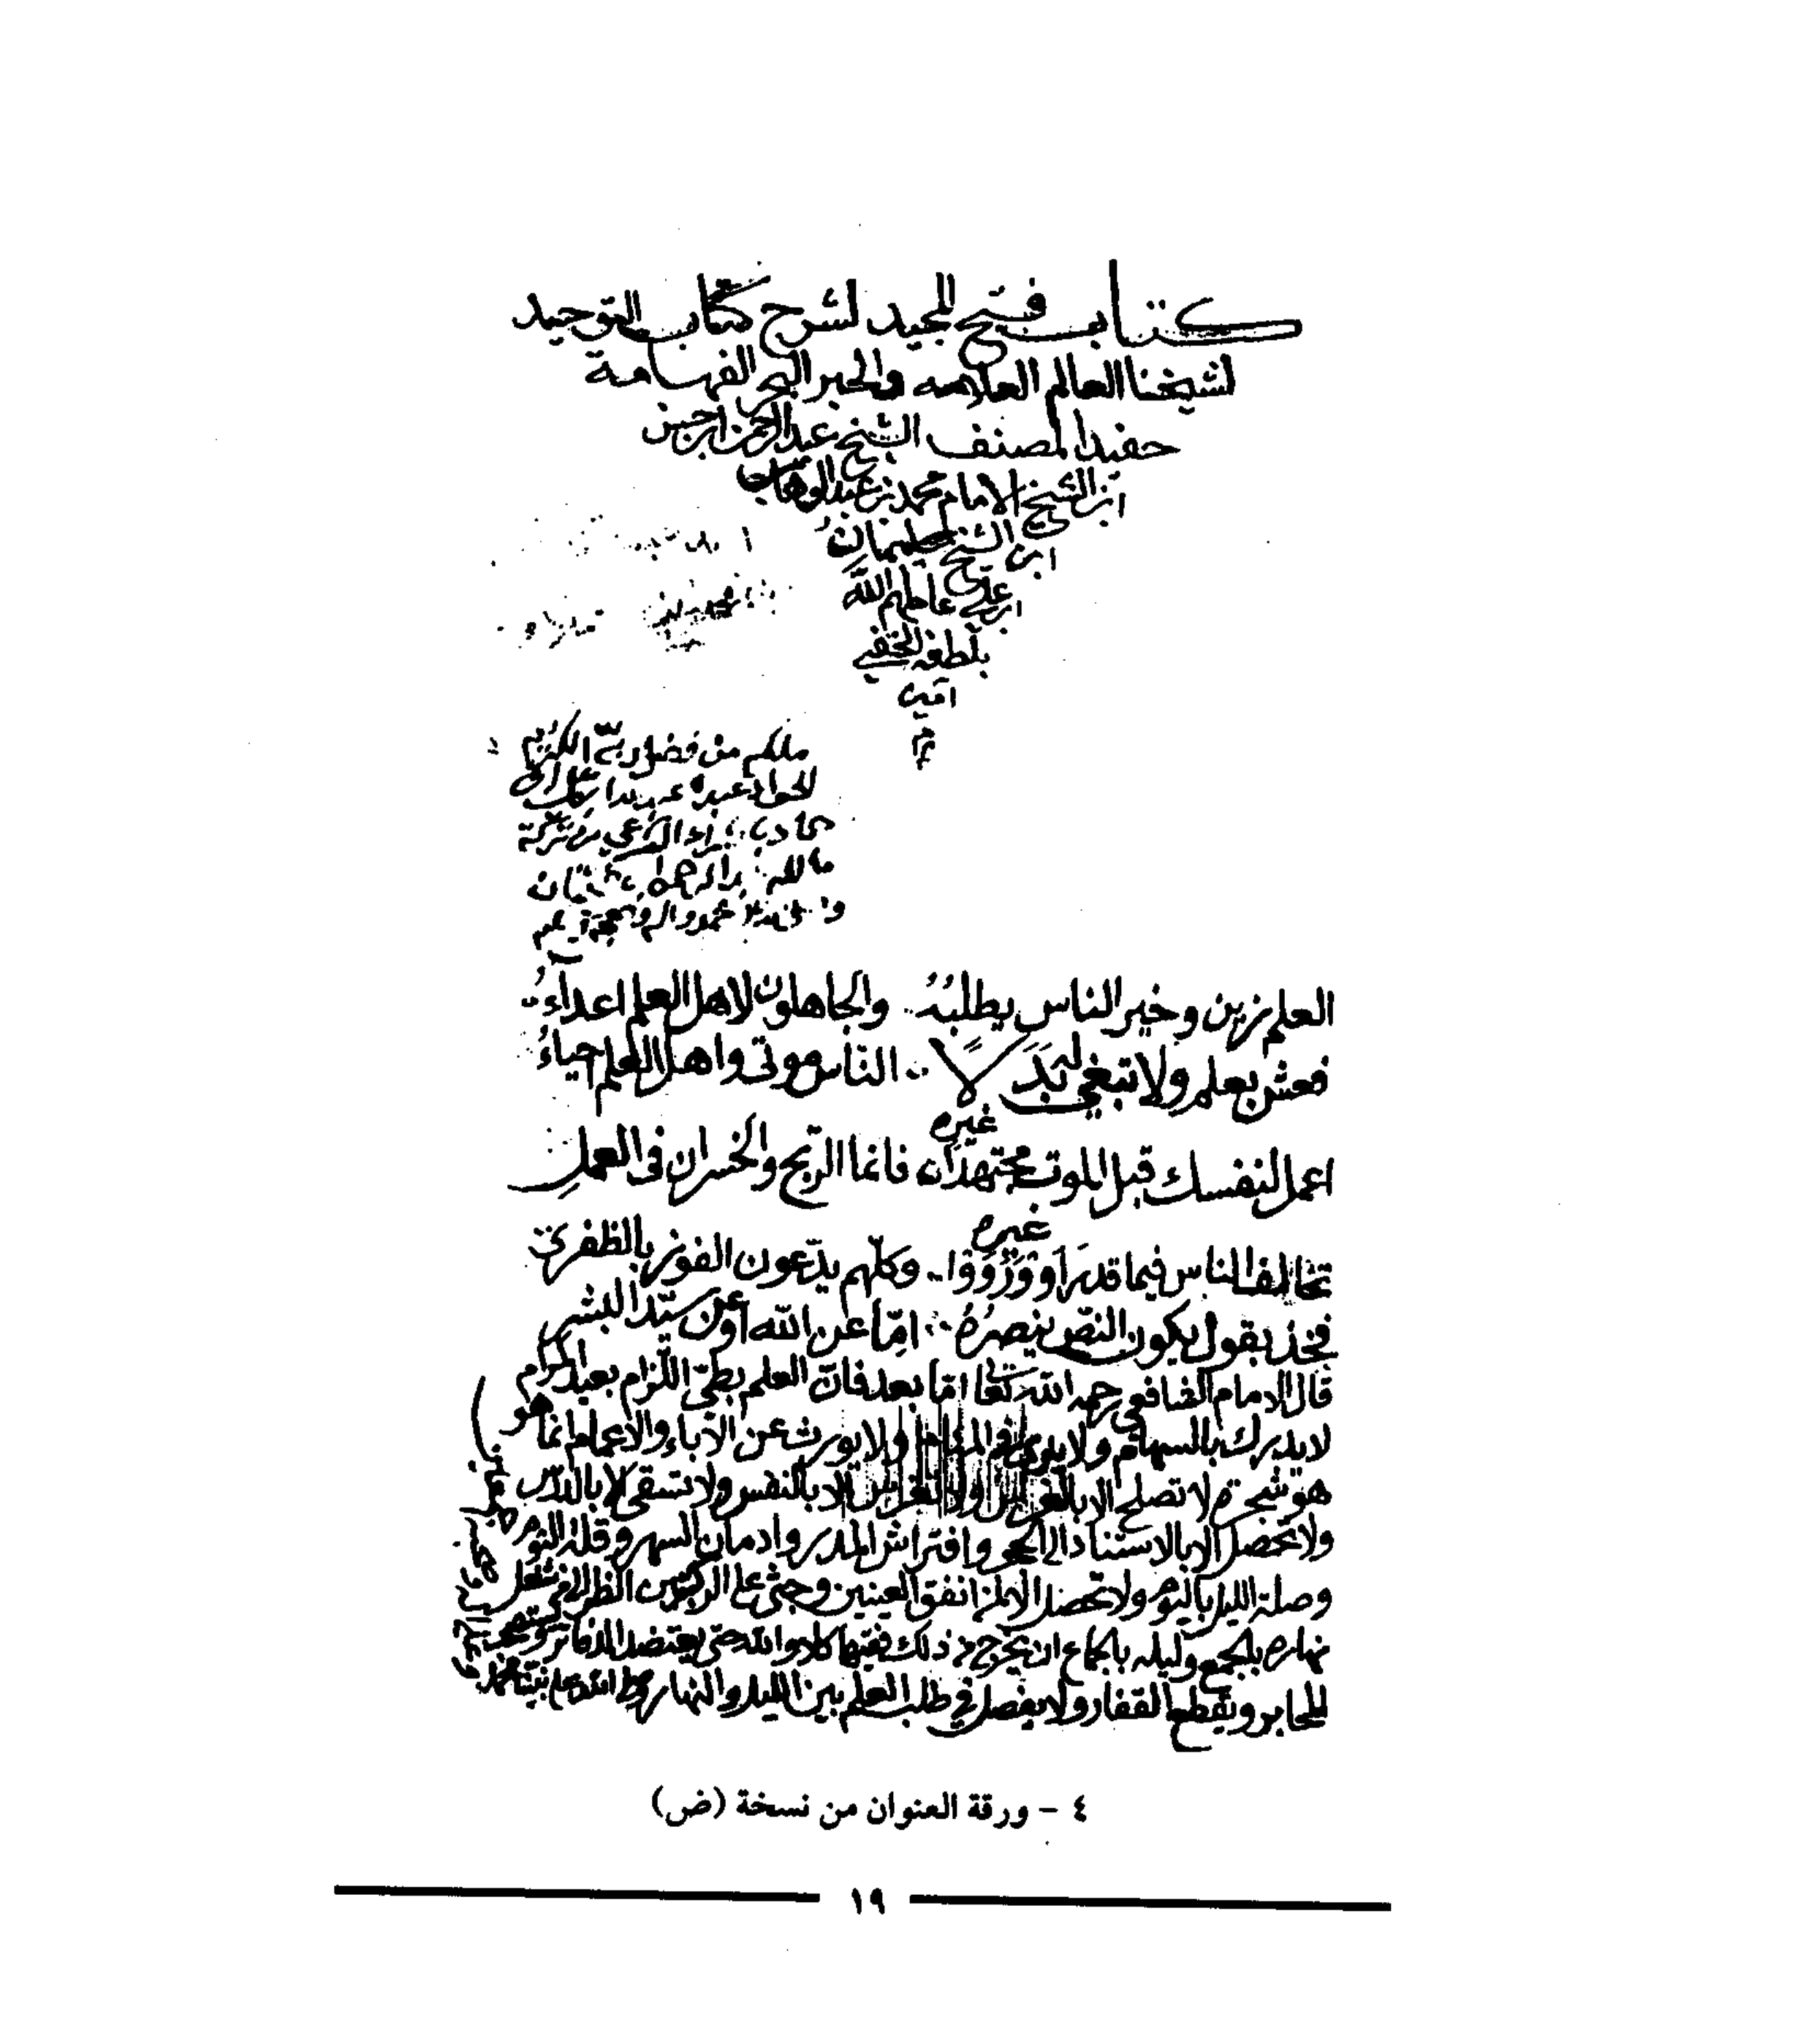 كتاب فتح المجيد لشرح كتاب التوحيد
لشيخنا العالم العلامه والحبر البحر الفهامة
حفيد المصنف الشيخ عبد الرحمن ابن حسن
ابن الشيخ الامام محمد بن عبد الوهاب
ابن الشيخ سليمان
ابن علي عاملهم الله
بلطفه الخفي
امين
م
من فضل ربه الكريم
عبده
العلم زين وخير الناس يطلبُهُ .. والجاهلون لاهل العلم اعداءُ
فعش بعلم ولا تبغي له بَدَلاً .. الناس موتى واهل العلم احياءُ
غيره
اعمل لنفسك قبل الموت مجتهدا .. فانما الربح والخسران في العملِ
غيره
تخالف الناس فيما قد رَأَو وَرَوَوْا .. وكلهم يدّعون الفوز بالظفر
فخذ بقول يكون النصّ ينصرُهُ .. امّا عن الله او عن سيّد البشر
قال الامام الشافعي رحمه الله تعالى امّا بعد فان العلم بطيّ اللزام بعيد المرام
لا يدرك بالسهام ولا يرى في المنام ولا يورث عن الآباء والاعمام انما هو
هو شجرة لا تصلح الا بالغرس ولا تغرس الا بالنفس ولا تسقى الا بالدرس
ولا تحصل الا بالاستناد الى الحجر وافتراش المدر وادمان السهر وقلة النوم
وصلة الليل باليوم ولا تحصل الا لمن انفق العينين وجثى على الركبتين
نهاره بالجمع وليله بالجماع ان يخرج من ذلك فقيها كلا والله حتى يعتضد الدفاتر
المحابر ويقطع القفار ولا يفصل في طلب العلم بين الليل والنهار
٤ – ورقة العنوان من نسخة (ض)
١٩